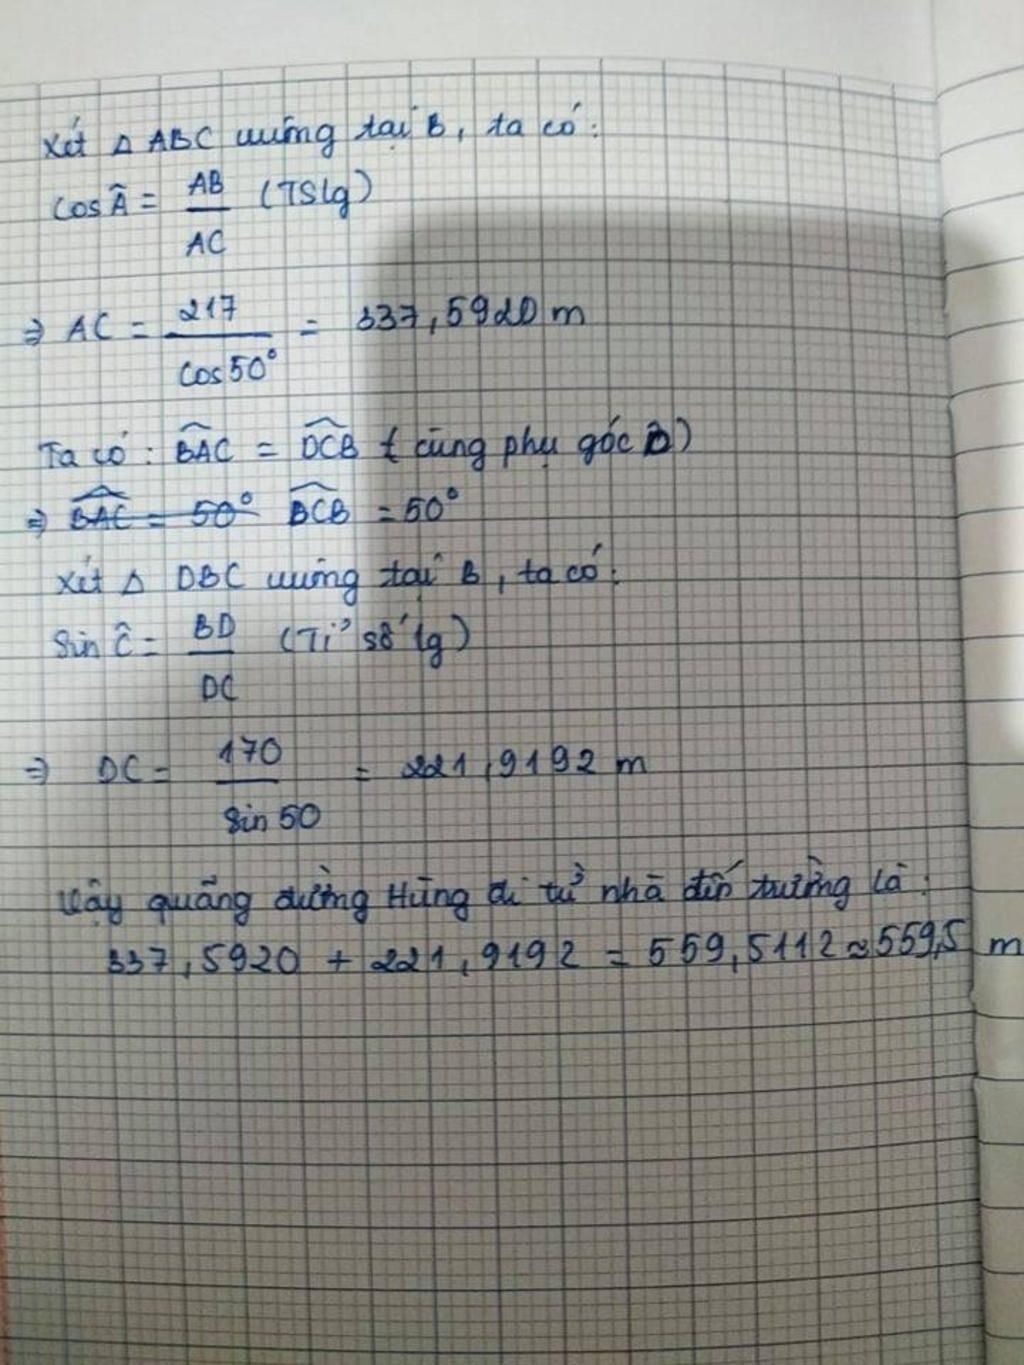 Xét Δ ABC vuông tại B, ta có:
Cos Â = AB/AC (TSlg)
⇒ AC = 217/Cos 50° = 337,5920 m
Ta có: BAC = DCB (cùng phụ góc D)
⇒ BAC = 50° BCB = 50°
Xét Δ DBC vuông tại B, ta có:
Sin Ĉ = BD/DC (Tỉ số lg)
⇒ DC = 170/Sin 50 = 221,9192 m
Vậy quãng đường Hùng đi từ nhà đến trường là:
337,5920 + 221,9192 = 559,5112 ≈ 559,5 m